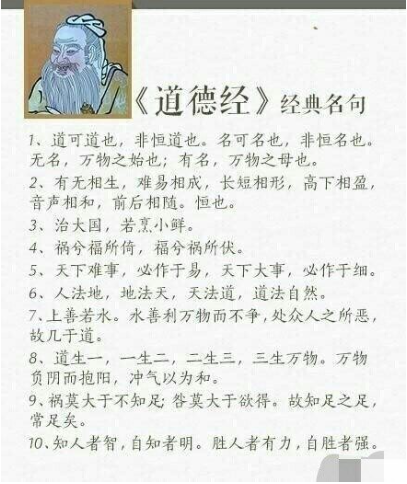 《道德经》经典名句
1、道可道也，非恒道也。名可名也，非恒名也。
无名，万物之始也；有名，万物之母也。
2、有无相生，难易相成，长短相形，高下相盈，
音声相和，前后相随。恒也。
3、治大国，若烹小鲜。
4、祸兮福所倚，福兮祸所伏。
5、天下难事，必作于易，天下大事，必作于细。
6、人法地，地法天，天法道，道法自然。
7、上善若水。水善利万物而不争，处众人之所恶，
故几于道。
8、道生一，一生二，二生三，三生万物。万物
负阴而抱阳，冲气以为和。
9、祸莫大于不知足；咎莫大于欲得。故知足之足，
常足矣。
10、知人者智，自知者明。胜人者有力，自胜者强。